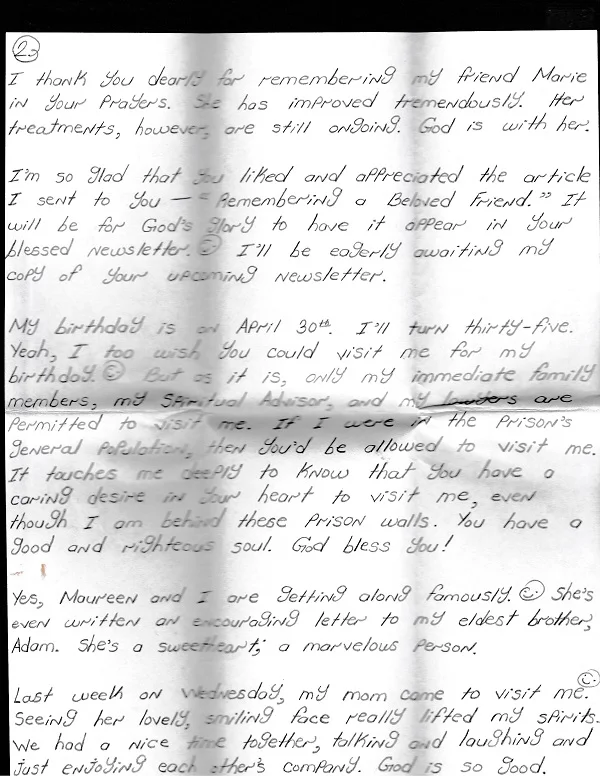 23
I thank you dearly for remembering my friend Marie
in your prayers. She has improved tremendously. Her
treatments, however, are still ongoing. God is with her.
I'm so glad that you liked and appreciated the article
I sent to you — "Remembering a Beloved Friend." It
will be for God's glory to have it appear in your
blessed newsletter. ☺ I'll be eagerly awaiting my
copy of your upcoming newsletter.
My birthday is on April 30th. I'll turn thirty-five.
Yeah, I too wish you could visit me for my
birthday. ☺ But as it is, only my immediate family
members, my Spiritual Advisor, and my lawyers are
permitted to visit me. If I were in the prison's
general population, then you'd be allowed to visit me.
It touches me deeply to know that you have a
caring desire in your heart to visit me, even
though I am behind these prison walls. You have a
good and righteous soul. God bless you!
Yes, Maureen and I are getting along famously. ☺ She's
even written an encouraging letter to my eldest brother,
Adam. She's a sweetheart; a marvelous person.
Last week on Wednesday, my mom came to visit me. ☺
Seeing her lovely, smiling face really lifted my spirits.
We had a nice time together, talking and laughing and
just enjoying each other's company. God is so good.